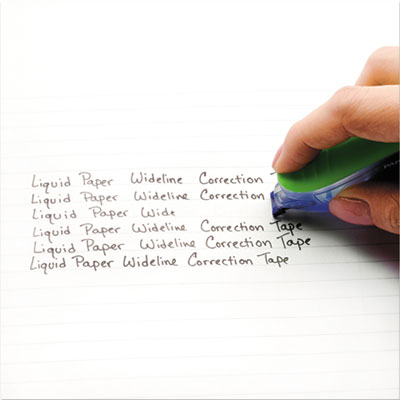 Liquid Paper Wideline Correction T
Liquid Paper Wideline Correction
Liquid Paper Wide
Liquid Paper Wideline Correction Tape
Liquid Paper Wideline Correction Tape
Liquid Paper Wideline Correction Tape